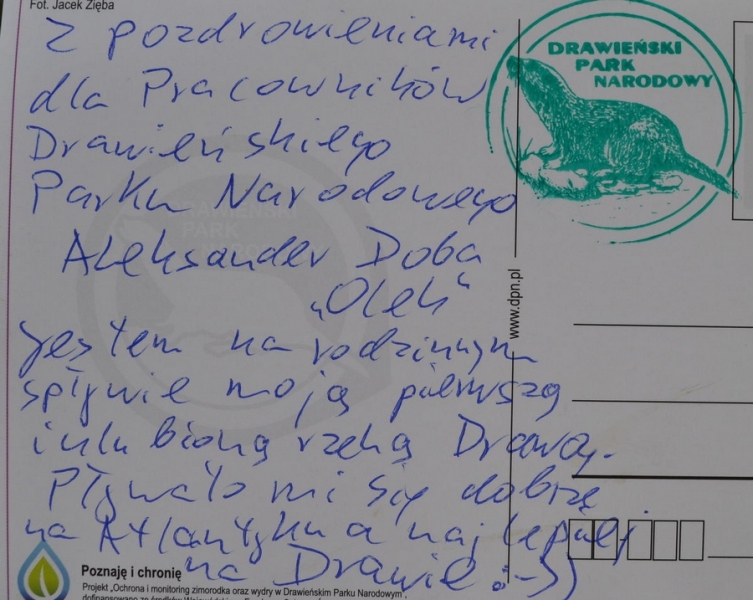 Fot. Jacek Zięba
z pozdrowieniami
dla Pracowników
Drawieńskiego
Parku Narodowego
Aleksander Doba
„Olek”
jestem na rodzinnym
spływie moją pierwszą
i ulubioną rzeką Drawą.
Pływało mi się dobrze
na Atlantyku a najlepiej
na Drawie :-))
DRAWIEŃSKI
PARK
NARODOWY
www.dpn.pl
DRAWIEŃSKI
PARK
NARODOWY
Poznaję i chronię
Projekt „Ochrona i monitoring zimorodka oraz wydry w Drawieńskim Parku Narodowym”,
dofinansowano ze środków